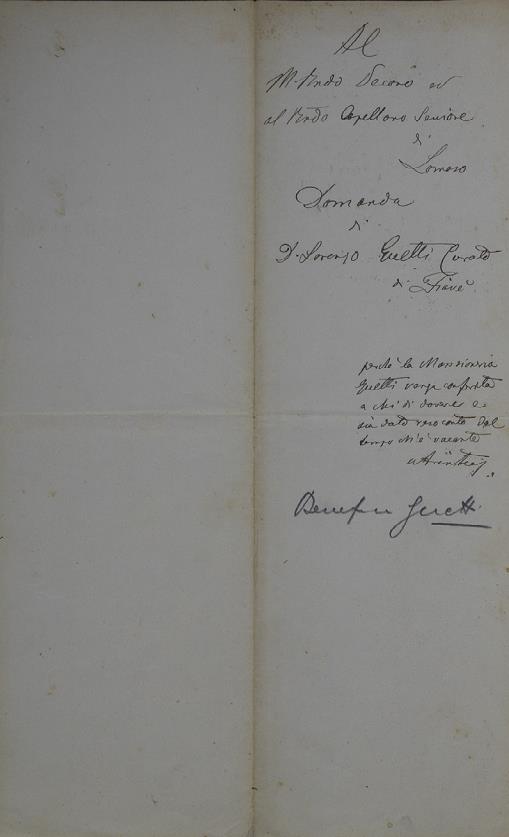 Al
M. Rndo Decano ed
al Rndo Capellano Seniore
di
Lomaso
Domanda
di
D. Lorenzo Guetti Curato
di Fiavè
perchè la Mansioneria
Guetti venga conferita
a chi di dovere e
sia dato resoconto dal
tempo ch'è vacante
Guetti